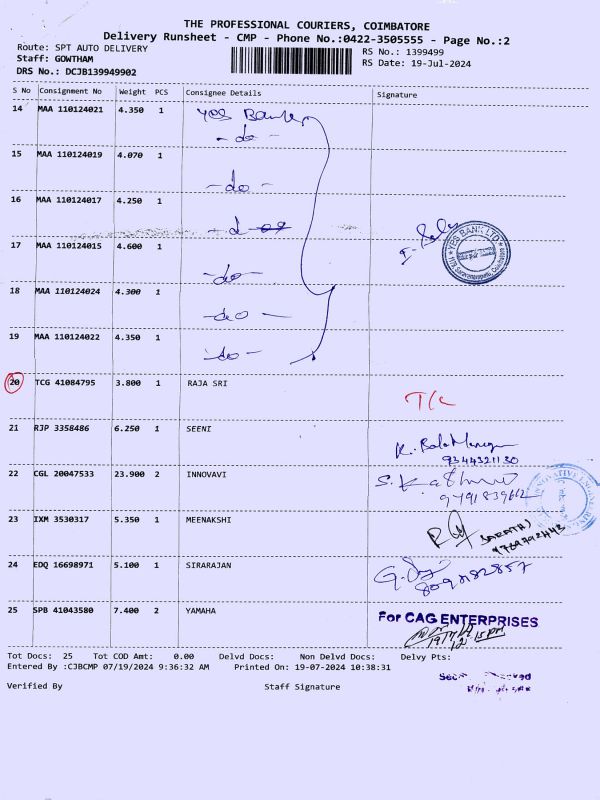 THE PROFESSIONAL COURIERS, COIMBATORE
Delivery Runsheet - CMP - Phone No.:0422-3505555 - Page No.:2
Route: SPT AUTO DELIVERY
RS No.: 1399499
Staff: GOWTHAM
RS Date: 19-Jul-2024
DRS No.: DCJB139949902
S No Consignment No Weight PCS Consignee Details Signature
14 MAA 110124021 4.350 1 Yes Bank
- do -
15 MAA 110124019 4.070 1
- do -
16 MAA 110124017 4.250 1
17 MAA 110124015 4.600 1
- do -
YES BANK LTD
18 MAA 110124024 4.300 1
- do -
19 MAA 110124022 4.350 1
- do -
20 TCG 41084795 3.800 1 RAJA SRI
T/c
21 RJP 3358486 6.250 1 SEENI
9344321130
22 CGL 20047533 23.900 2 INNOVAVI
S. 
23 IXM 3530317 5.350 1 MEENAKSHI
24 EDQ 16698971 5.100 1 SIRARAJAN
25 SPB 41043580 7.400 2 YAMAHA
For CAG ENTERPRISES
Tot Docs: 25 Tot COD Amt: 0.00 Delvd Docs: Non Delvd Docs: Delvy Pts:
Entered By :CJBCMP 07/19/2024 9:36:32 AM Printed On: 19-07-2024 10:38:31
Verified By Staff Signature